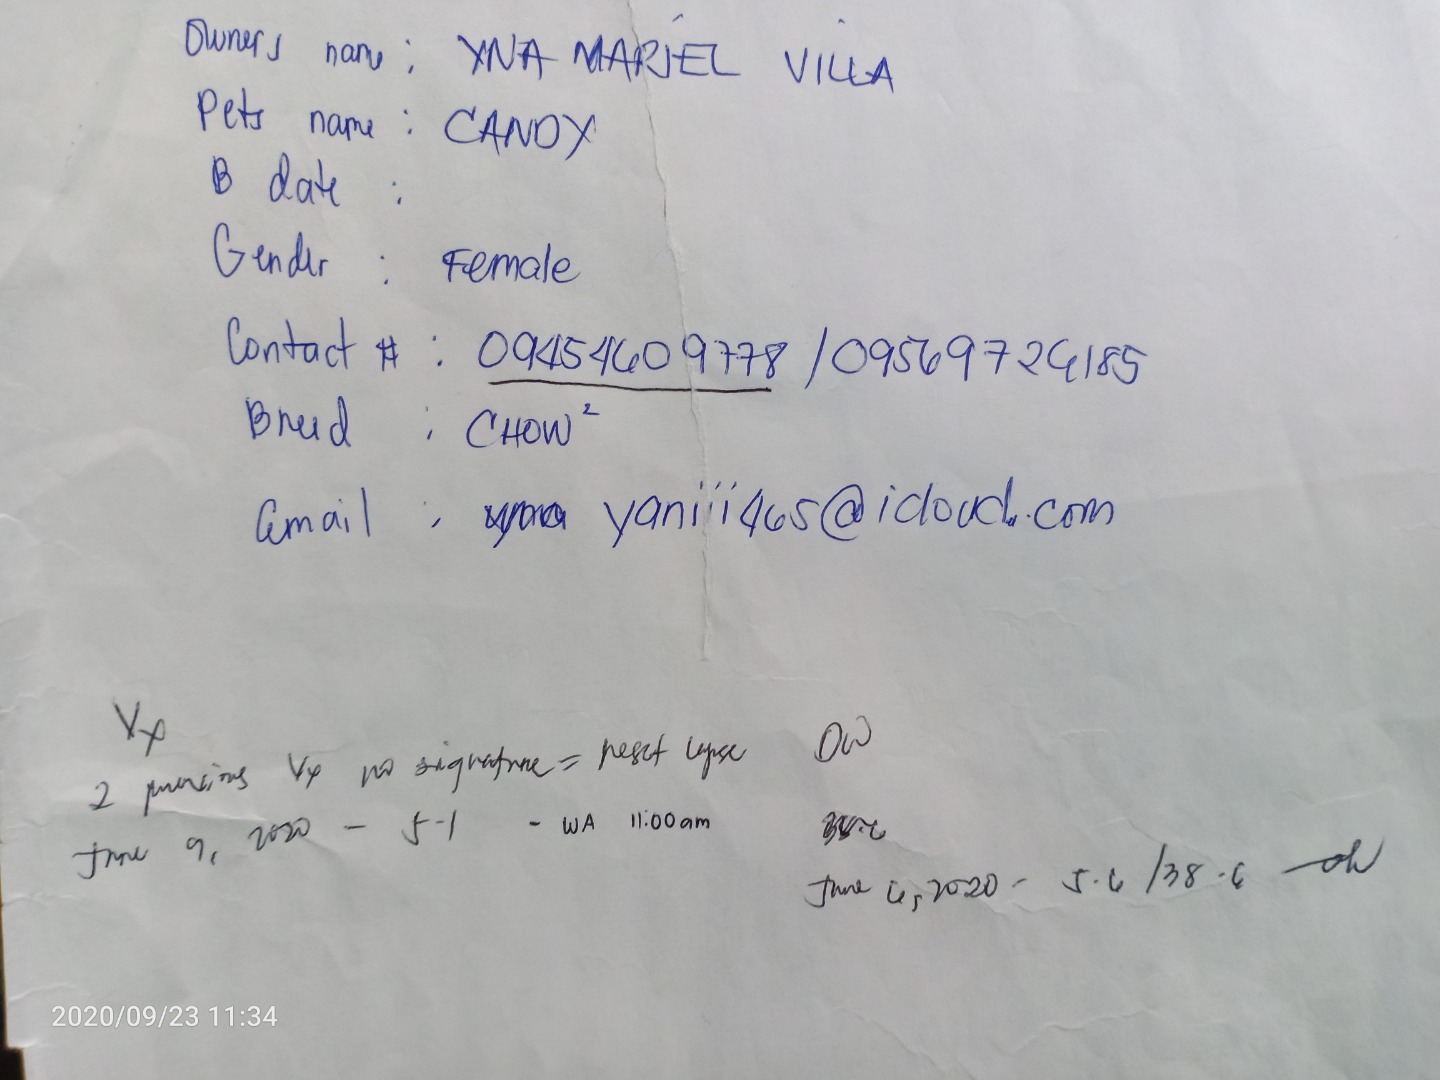 Owners name : YNA MARIEL VILLA
Pets name : CANDY
B date :
Gender : Female
Contact # : 09454609778 / 09569726185
Breed : CHOW²
Email : yaniii465@icloud.com
Vx
2 previous Vx no signature = reset lapse
June 9, 2020 - 5.1 - WA 11:00am
DW
June 6, 2020 - 5.6 / 38.6
2020/09/23 11:34